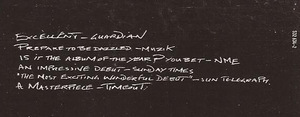 EXCELLENT - GUARDIAN
PREPARE TO BE DAZZLED - MUZIK
IS IT THE ALBUM OF THE YEAR? YOU BET - NME
AN IMPRESSIVE DEBUT - SUNDAY TIMES
"THE MOST EXCITING WONDERFUL DEBUT" - SUN TELEGRAPH
A MASTERPIECE - TIMEOUT